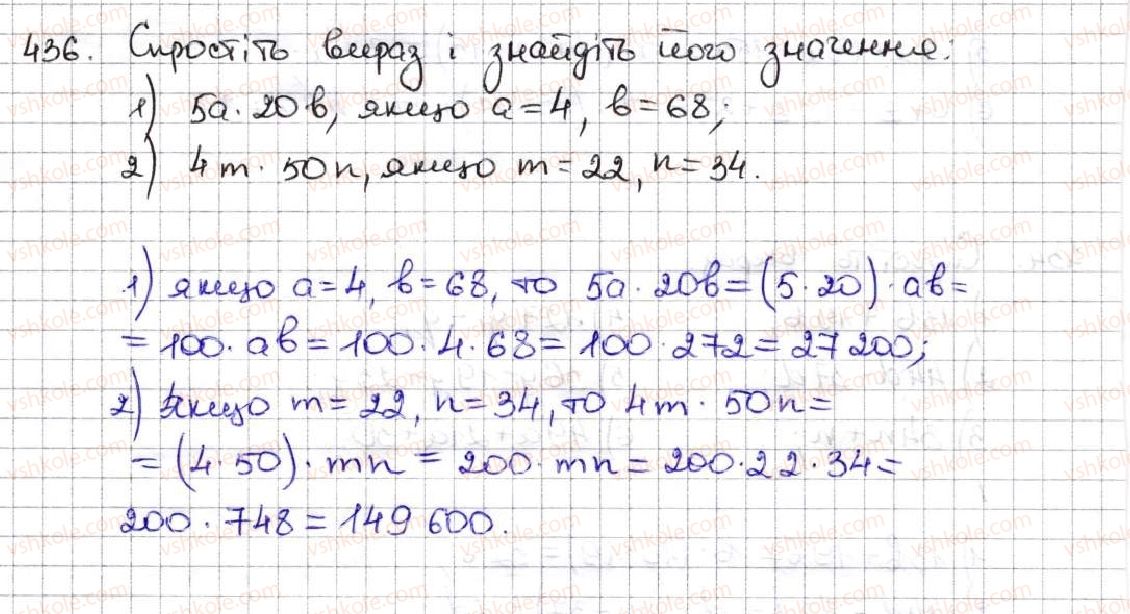 436. Спростіть вираз і знайдіть його значення:
1) 5a · 20b, якщо a = 4, b = 68;
2) 4m · 50n, якщо m = 22, n = 34.
1) якщо a = 4, b = 68, то 5a · 20b = (5 · 20) · ab =
= 100 · ab = 100 · 4 · 68 = 100 · 272 = 27 200;
2) якщо m = 22, n = 34, то 4m · 50n =
= (4 · 50) · mn = 200 · mn = 200 · 22 · 34 =
200 · 748 = 149 600.